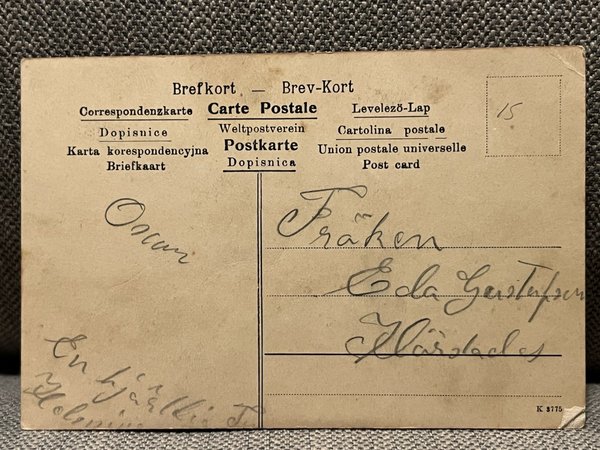 Brefkort — Brev-Kort
Correspondenzkarte Carte Postale Levelező-Lap
Dopisnice Weltpostverein Cartolina postale
Karta korespondencyjna Postkarte Union postale universelle
Briefkaart Dopisnica Post card
15
Oscar
Fröken
Eda Gustafson
En hjärtlig
K 3775